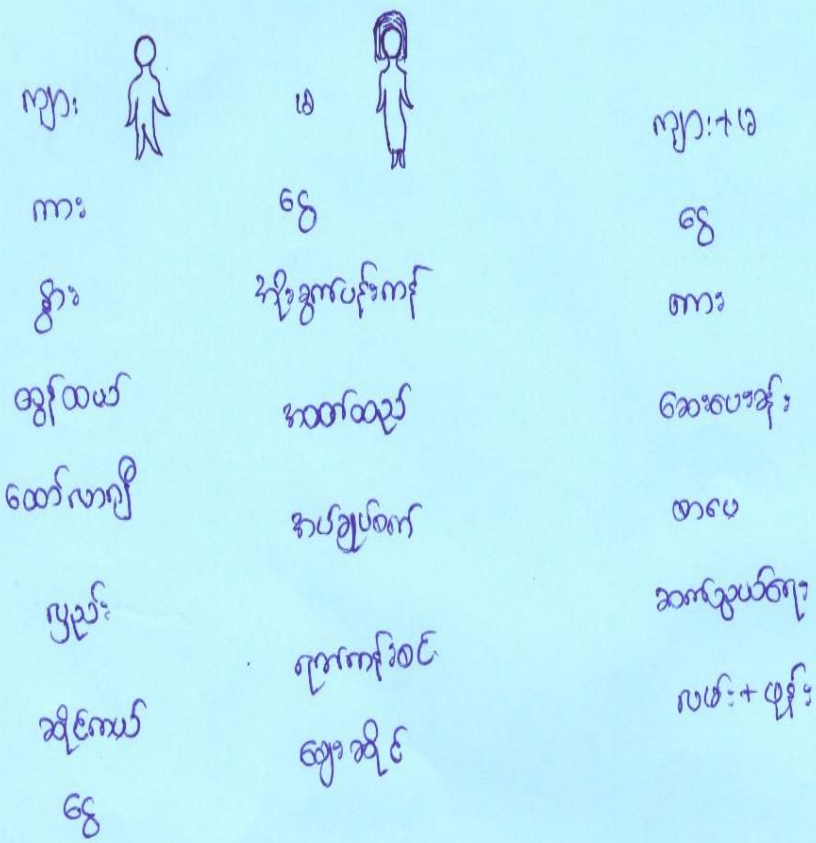 ကျား
ကား
နွား
ထွန်ထယ်
ထော်လာဂျီ
လှည်း
ဆိုင်ကယ်
ငွေ
မ
ငွေ
အိုးခွက်ပန်းကန်
အဝတ်ထည်
အပ်ချုပ်စက်
ရက်ကန်းစင်
ဈေးဆိုင်
ကျား+မ
ငွေ
ကား
ဆေးပေးခန်း
စာပေ
ဆက်သွယ်ရေး
လမ်း+ဖုန်း